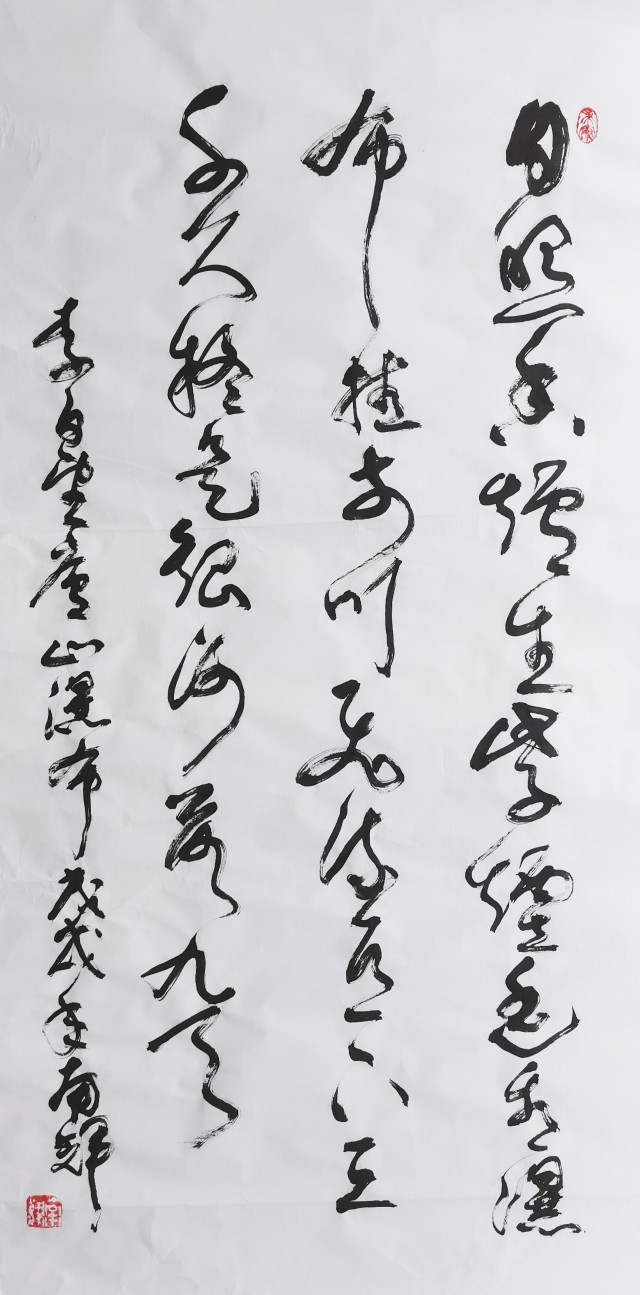 日照香爐生紫煙遥看瀑
布挂前川飛流直下三
千尺疑是銀河落九天
李白望廬山瀑布戊戌年南輝